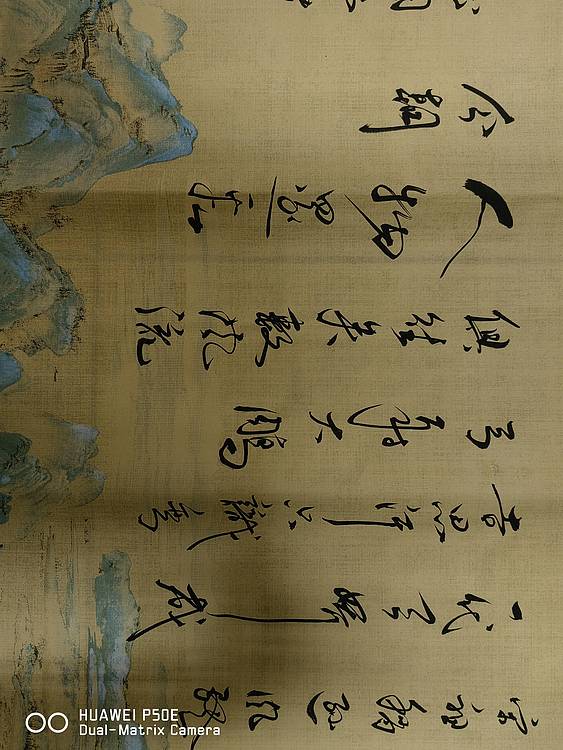 宋祖稍逊风骚
一代天骄成
吉思汗只识弯
弓射大雕
俱往矣数风流
人物还看
今朝
HUAWEI P50E
Dual-Matrix Camera